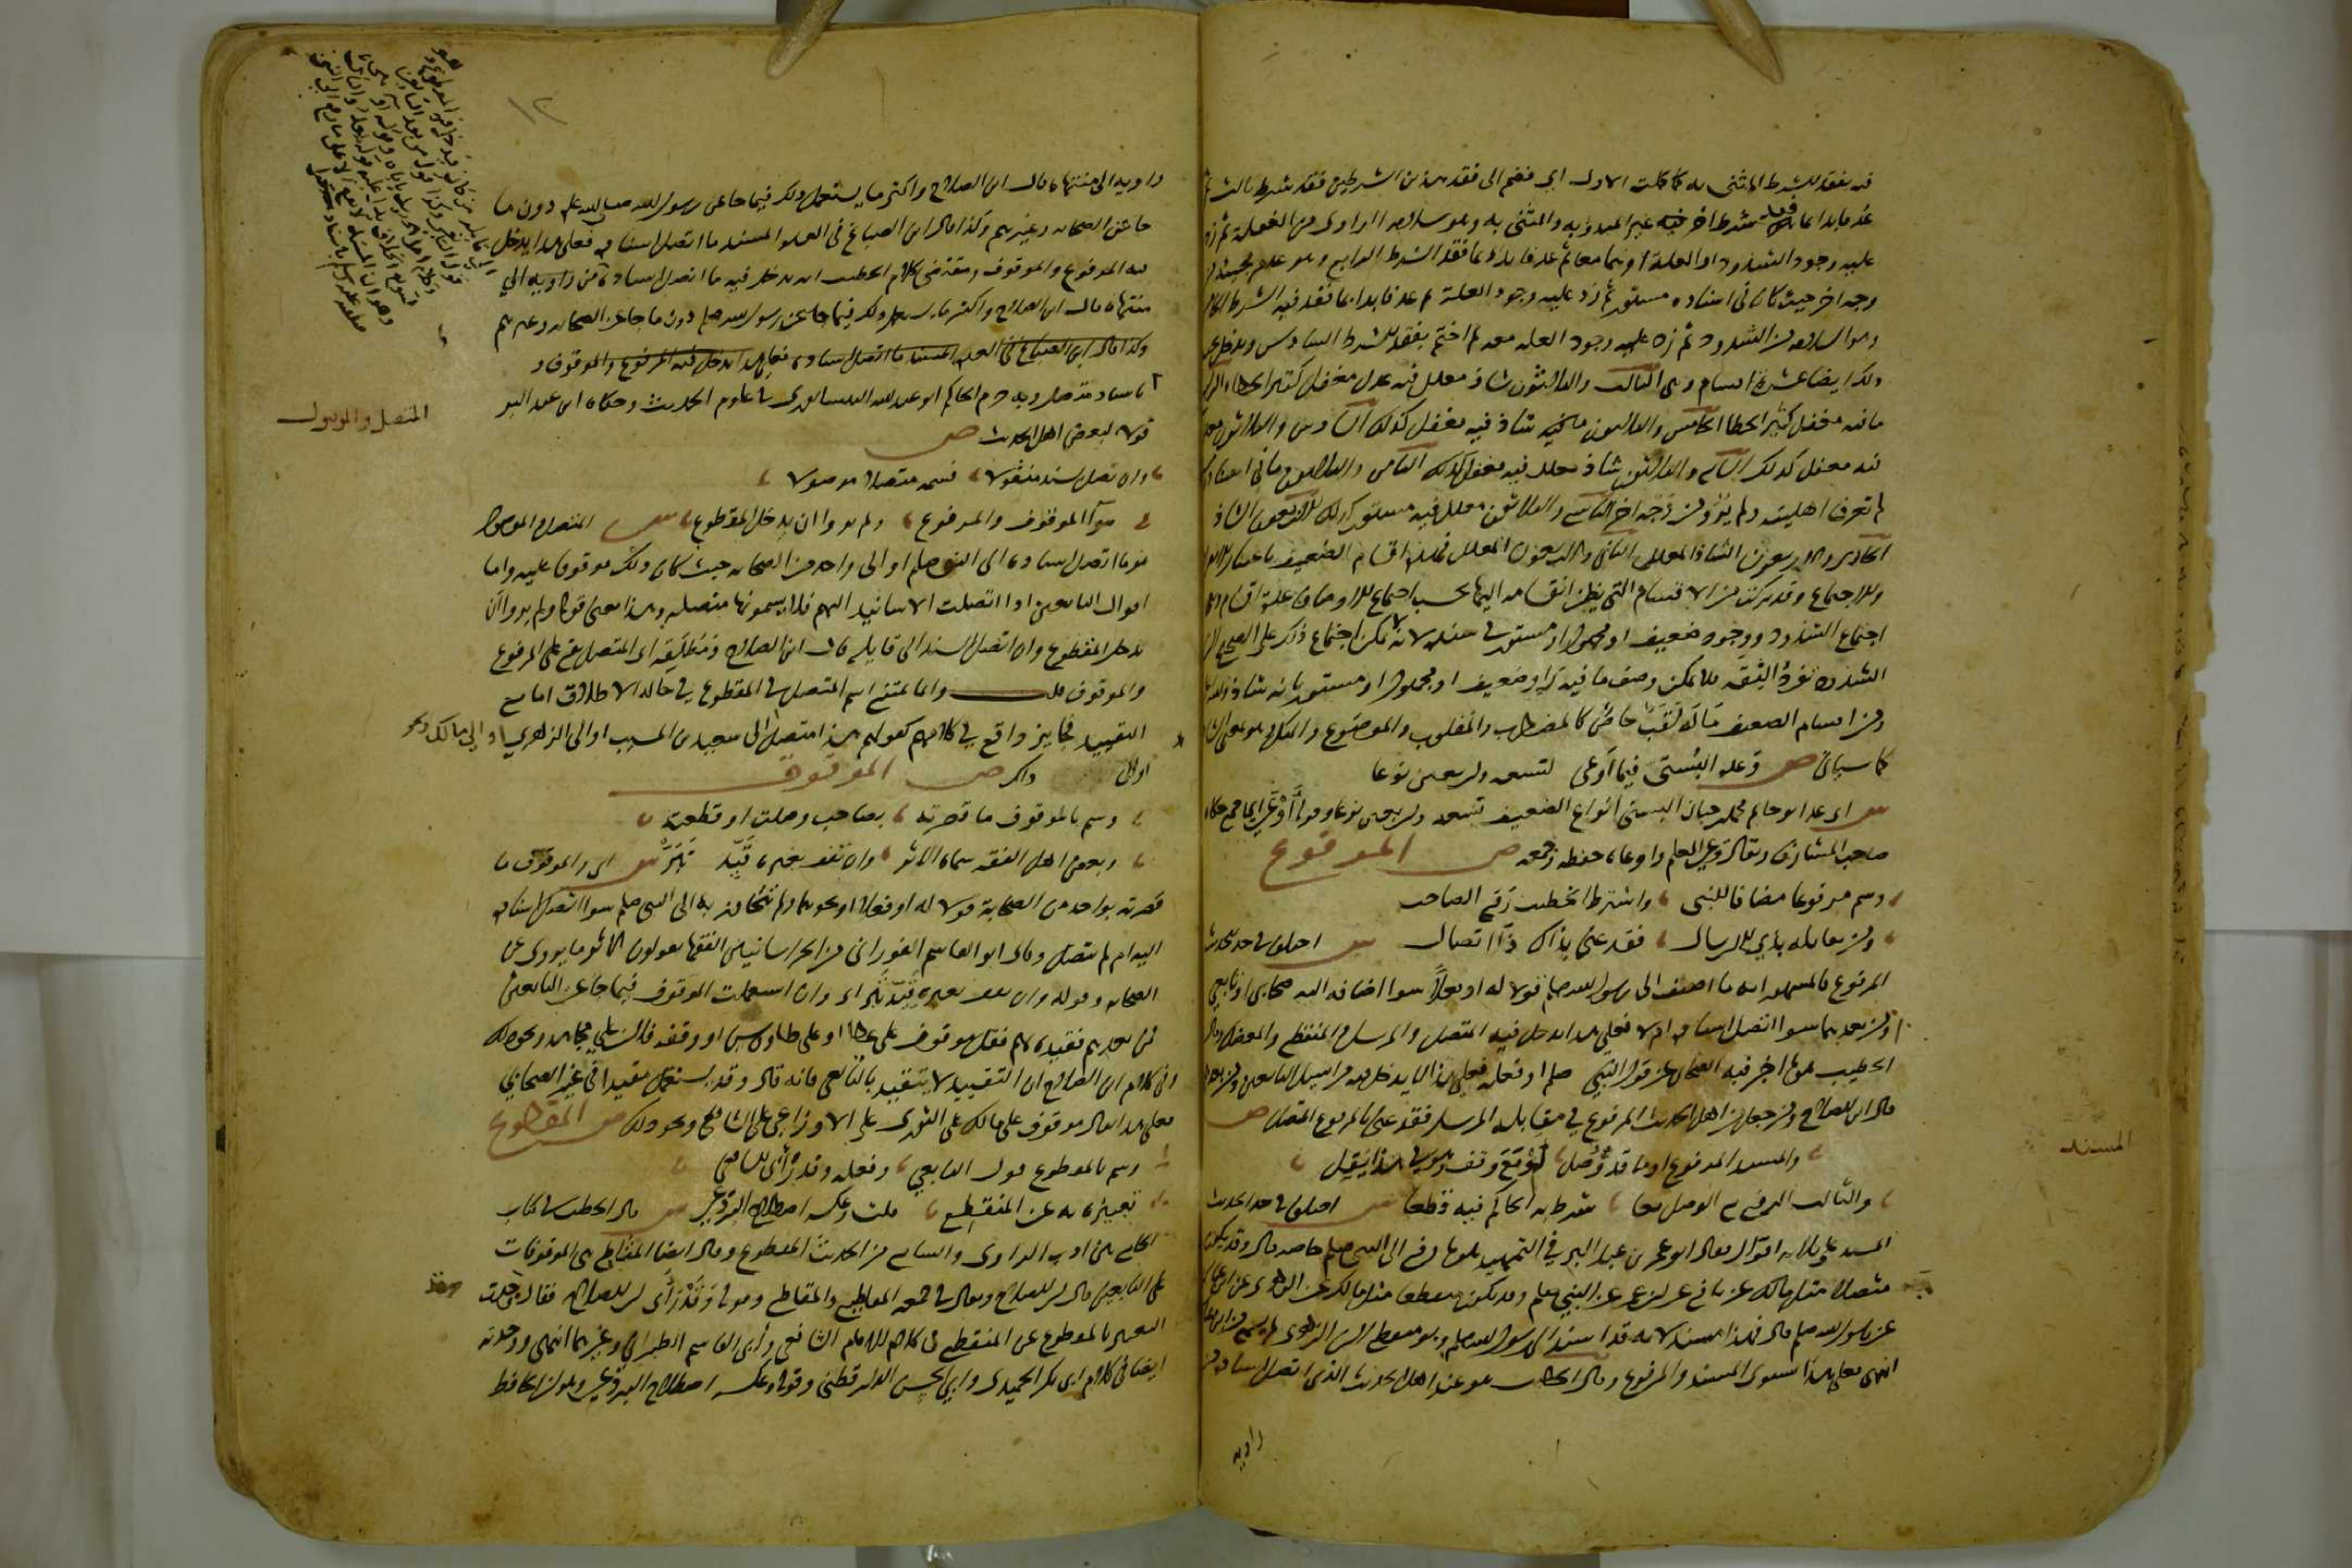 فيه بفقد الشرط المثنى به كما كملت الاول اي فضم الى فقد هذين الشرطين فقد شرط ثالث ثم
عد فابدا بما فقد فيه شرط اخر غير المبدو به والمثنى به وهو سلامة الراوي من الغفلة ثم زد
عليه وجود الشذوذ او العلة او هما معا ثم عد فابدا بما فقد الشرط الرابع وهو عدم مجيئه
وجه اخر حيث كان في اسناده مستور ثم زد عليه وجود العلة ثم عد فابدا بما فقد فيه الشرط
وهو السلامة من الشذوذ ثم زد عليه وجود العلة معه ثم اختم بفقد الشرط السادس ويدخل
ذلك ايضا عشرة اقسام وهي الثالث والثلاثون شاذ معلل فيه عدل مغفل كثير الخطا
ما فيه مغفل كثير الخطا الخامس والثلاثون شاذ فيه مغفل كذلك السادس والثلاثون
فيه مغفل كذلك السابع والثلاثون شاذ معلل فيه مغفل كذلك الثامن والثلاثون ما في اسناده
لم تعرف اهليته ولم يرو من وجه اخر التاسع والثلاثون معلل فيه مستور كذلك الاربعون الشاذ
الحادي والاربعون الشاذ المعلل الثاني والاربعون المعلل فهذه اقسام الضعيف باعتبار
والاجتماع وقد تركت من الاقسام التي يظن انقسامه اليها بحسب اجتماع الاوصاف عدة اقسام
اجتماع الشذوذ ووجود ضعيف او مجهول او مستور في سنده لانه لا يمكن اجتماع ذلك على الصحيح
الشذوذ تفرد الثقة فلا يمكن وصف ما فيه راو ضعيف او مجهول او مستور بانه شاذ
ومن اقسام الضعيف ما له لقب خاص كالمضطرب والمقلوب والموضوع والمنكر وهو بمعنى الشاذ
كما سياتي ص وعده البستي فيما اوعى لتسعة واربعين نوعا
ش اي عد ابو حاتم محمد بن حبان البستي انواع الضعيف تسعة واربعين نوعا وقولنا اوعى اي جمع حكاه
صاحب المشارق ويقال وعى العلم واوعاه حفظه وجمعه ص المرفوع
وسم مرفوعا مضافا للنبي واشترط الخطيب رفع الصاحب
ومن يقابله بذي الارسال فقد عنى بذاك ذا اتصال ش اختلف في حد الحديث
المرفوع فالمشهور انه ما اضيف الى رسول الله صلعم قولا له او فعلا سوا اضافه اليه صحابي او تابعي
او من بعدهما سوا اتصل اسناده ام لا فعلى هذا يدخل فيه المتصل والمرسل والمنقطع والمعضل وقال
الخطيب هو ما اخبر فيه الصحابي عن قول النبي صلعم او فعله فعلى هذا لا يدخل فيه مراسيل التابعين ومن بعدهم
قال ابن الصلاح ومن جعل من اهل الحديث المرفوع في مقابلة المرسل فقد عنى بالمرفوع المتصل ص
المسند
والمسند المرفوع او ما قد وصل لو مع وقف وهو في هذا يقل
والثالث الرفع مع الوصل معا شرط به الحاكم فيه قطعا ش اختلف في حد الحديث
المسند على ثلاثة اقوال فقال ابو عمر بن عبد البر في التمهيد هو ما رفع الى النبي صلعم خاصة قال وقد يكون
متصلا مثل مالك عن نافع عن ابن عمر عن النبي صلعم وقد يكون منقطعا مثل مالك عن الزهري عن ابن عباس
عن رسول الله صلعم قال فهذا مسند لانه قد اسند الى رسول الله صلعم وهو منقطع لان الزهري لم يسمع من ابن عباس
انتهى فعلى هذا يستوي المسند والمرفوع وقال الخطيب هو عند اهل الحديث الذي اتصل اسناده من
راويه
١٢
راويه الى منتهاه قال ابن الصلاح واكثر ما يستعمل ذلك فيما جا عن رسول الله صلى الله عليه وسلم دون ما
جا عن الصحابة وغيرهم وكذا قال ابن الصباغ في العدة المسند ما اتصل اسناده فعلى هذا يدخل
فيه المرفوع والموقوف ومقتضى كلام الخطيب انه يدخل فيه ما اتصل اسناده من راويه الى
منتهاه قال ابن الصلاح واكثر ما يستعمل ذلك فيما جا عن رسول الله صلعم دون ما جا عن الصحابة وغيرهم
وكذا قال ابن الصباغ في العدة المسند ما اتصل اسناده فعلى هذا يدخل فيه المرفوع والموقوف و
باسناد متصل وبه جزم الحاكم ابو عبد الله النيسابوري في علوم الحديث وحكاه ابن عبد البر
قولا لبعض اهل الحديث ص
المتصل والموصول
وان تصل بسند منقولا فسمه متصلا موصولا
سوا الموقوف والمرفوع ولم يروا ان يدخل المقطوع ش المتصل والموصول
هو ما اتصل اسناده الى النبي صلعم او الى واحد من الصحابة حيث كان ذلك موقوفا عليه واما
اقوال التابعين اذا اتصلت الاسانيد اليهم فلا يسمونها متصلة وهذا معنى قولي ولم يروا ان
يدخل المقطوع وان اتصل السند الى قايله قال ابن الصلاح ومطلقه اي المتصل يقع على المرفوع
والموقوف قلت وانما يمتنع اسم المتصل في المقطوع في حالة الاطلاق اما مع
التقييد فجايز واقع في كلامهم كقولهم هذا متصل الى سعيد بن المسيب او الى الزهري او الى مالك ونحو
ذلك ص الموقوف
وسم بالموقوف ما قصرته بصاحب وصلت او قطعته
وبعض اهل الفقه سماه الاثر وان تقف بغيره قيد تبر ش اي والموقوف ما
قصرته بواحد من الصحابة قولا له او فعلا او نحوهما ولم تتجاوز به الى النبي صلعم سوا اتصل اسناده
اليه ام لم يتصل وقال ابو القاسم الفوراني من الخراسانيين الفقها يقولون الاثر ما يروى عن
الصحابة وقوله وان تقف بغيره قيد تبر اي وان استعملت الموقوف فيما جا عن التابعين
فمن بعدهم فقيده بهم فقل موقوف على عطا او على طاوس او وقفه فلان على مجاهد ونحو ذلك
وفي كلام ابن الصلاح ان التقييد لا يتقيد بالتابعي فانه قال وقد يستعمل مقيدا في غير الصحابي
فعلى هذا يقال موقوف على مالك على الثوري على الاوزاعي على الشافعي ونحو ذلك ص المقطوع
وسم بالمقطوع قول التابعي وفعله وقد راى للشافعي
تعبيره به عن المنقطع قلت وعكسه اصطلاح البردعي ش قال الخطيب في كتاب
الجامع بين ادب الراوي والسامع من الحديث المقطوع وقال ايضا المقاطع هي الموقوفات
على التابعين قال ابن الصلاح ويقال في جمعه المقاطيع والمقاطع وقولي وقد راى اي ابن الصلاح فقال وجدت
التعبير بالمقطوع عن المنقطع في كلام الامام الشافعي وابي القاسم الطبراني وغيرهما انتهى ووجدته
ايضا في كلام ابي بكر الحميدي وابي الحسن الدارقطني وقولي وعكسه اصطلاح البردعي وهو ان الحافظ